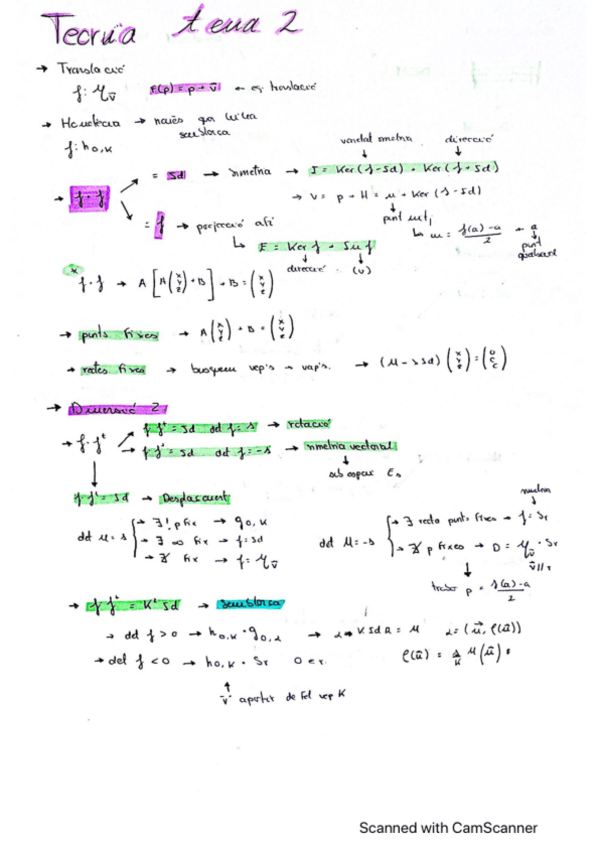 Teoria tema 2
→ Translació
f: η_v̄   f(p) = p + v̄ ← eq translació
→ Homotècia → només que hi ha semblança
f: h_{o,k}
varietat simetria   direcció
→ f·f
= Id → simetria → I = Ker(f-Id) + Ker(f+Id)
→ V = p + H = m + Ker(f-Id)
punt mitj
↳ m = f(a)-a / 2 ← a punt qualsevol
= f → projecció afí
↳ E = Ker f + Im f
direcció (v)
* f·f → A[A(x y z) + B] + B = (x y z)
→ punts fixes → A(x y z) + B = (x y z)
→ rectes fixes → busquem vep's → vap's. →
→ Dimensió 2
→ f·f^t
f f^t = Id det f = 1 → rotació
f f^t = Id det f = -1 → simetria vectorial
sub espai
f f^t = Id → Desplaçament
det M = 1
→ ∃! p fix → g_{o,α}
→ ∃ ∞ fix → f = Id
→ ∄ fix → f = η_v̄
det M = -1
→ ∃ recta punts fixes → f = S_r
→ ∄ p fixes → D = η_v̄ · S_r
v̄ // r
trobar p = f(a)-a / 2
→ f f^t = K² Id → semblança
→ det f > 0 → h_{o,k} · g_{o,α}
→ det f < 0 → h_{o,k} · S_r   O ∈ r
v̄ a partir de fel vep K
Scanned with CamScanner